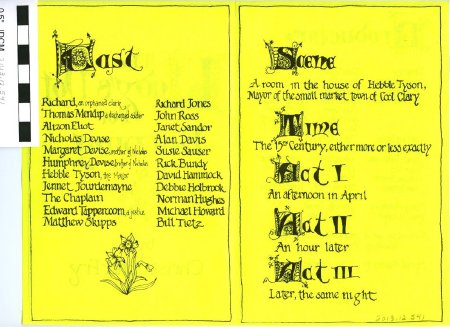 Cast
Richard, an orphaned clerk Richard Jones
Thomas Mendip, a discharged soldier John Ross
Alizon Eliot Janet Sandor
Nicholas Devise Alan Davis
Margaret Devise, mother of Nicholas Susie Sauser
Humphrey Devise, brother of Nicholas Rick Bundy
Hebble Tyson, the Mayor David Hammock
Jennet Jourdemayne Debbie Holbrook
The Chaplain Norman Hughes
Edward Tappercoom, a justice Michael Howard
Matthew Skipps Bill Tietz
Scene
A room in the house of Hebble Tyson,
Mayor of the small market town of Cool Clary
Time
The 15th Century, either more or less exactly
Act I
An afternoon in April
Act II
An hour later
Act III
Later, the same night
2013.12.541